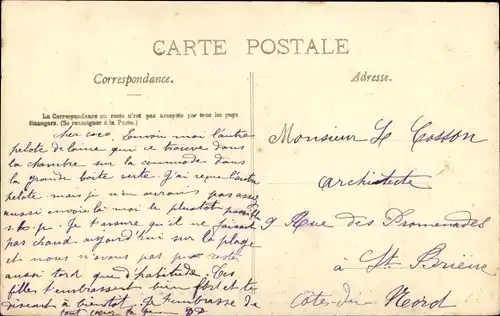 CARTE POSTALE
Correspondance.
Adresse.
La Correspondance au recto n'est pas acceptée par tous les pays
étrangers. (Se renseigner à la Poste.)
Cher coco. Envoie moi l'autre
pelote de laine qui ce trouve dans
la chambre sur la commode dans
la grande boîte verte. J'ai reçue l'autre
pelote mais je n'en aurais pas assez
aussi envoie là moi le plustôt possible
s.t.p. Je t'assure qu'il ne faisait
pas chaud aujourd'hui sur la plage
et nous n'avons pas pu resté
aussi tard que d'habitude. Tes
filles t'embrassent bien fort et te
disent à bientôt. Je t'embrasse de
tout cœur ta
Monsieur Le Cosson
architecte
9 Rue des Promenades
à St Brieuc
Côtes-du-Nord